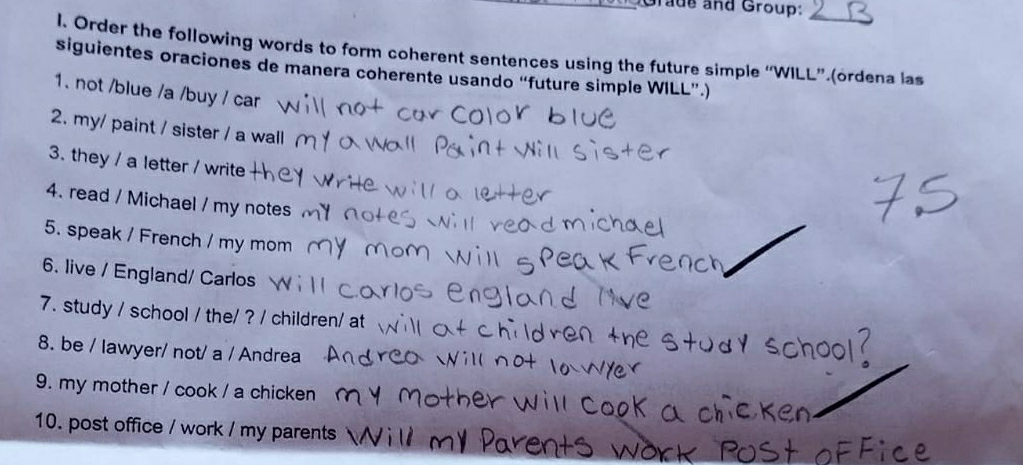 Grade and Group: 2 B
I. Order the following words to form coherent sentences using the future simple "WILL".(ordena las
siguientes oraciones de manera coherente usando "future simple WILL".)
1. not /blue /a /buy / car will not car color blue
2. my/ paint / sister / a wall my a wall Paint will sister
3. they / a letter / write they write will a letter
7.5
4. read / Michael / my notes my notes will read michael
5. speak / French / my mom my mom will speak French
6. live / England/ Carlos will carlos england live
7. study / school / the/ ? / children/ at will at children the study school?
8. be / lawyer/ not/ a / Andrea Andrea will not lawyer
9. my mother / cook / a chicken my mother will cook a chicken
10. post office / work / my parents Will my Parents work Post office